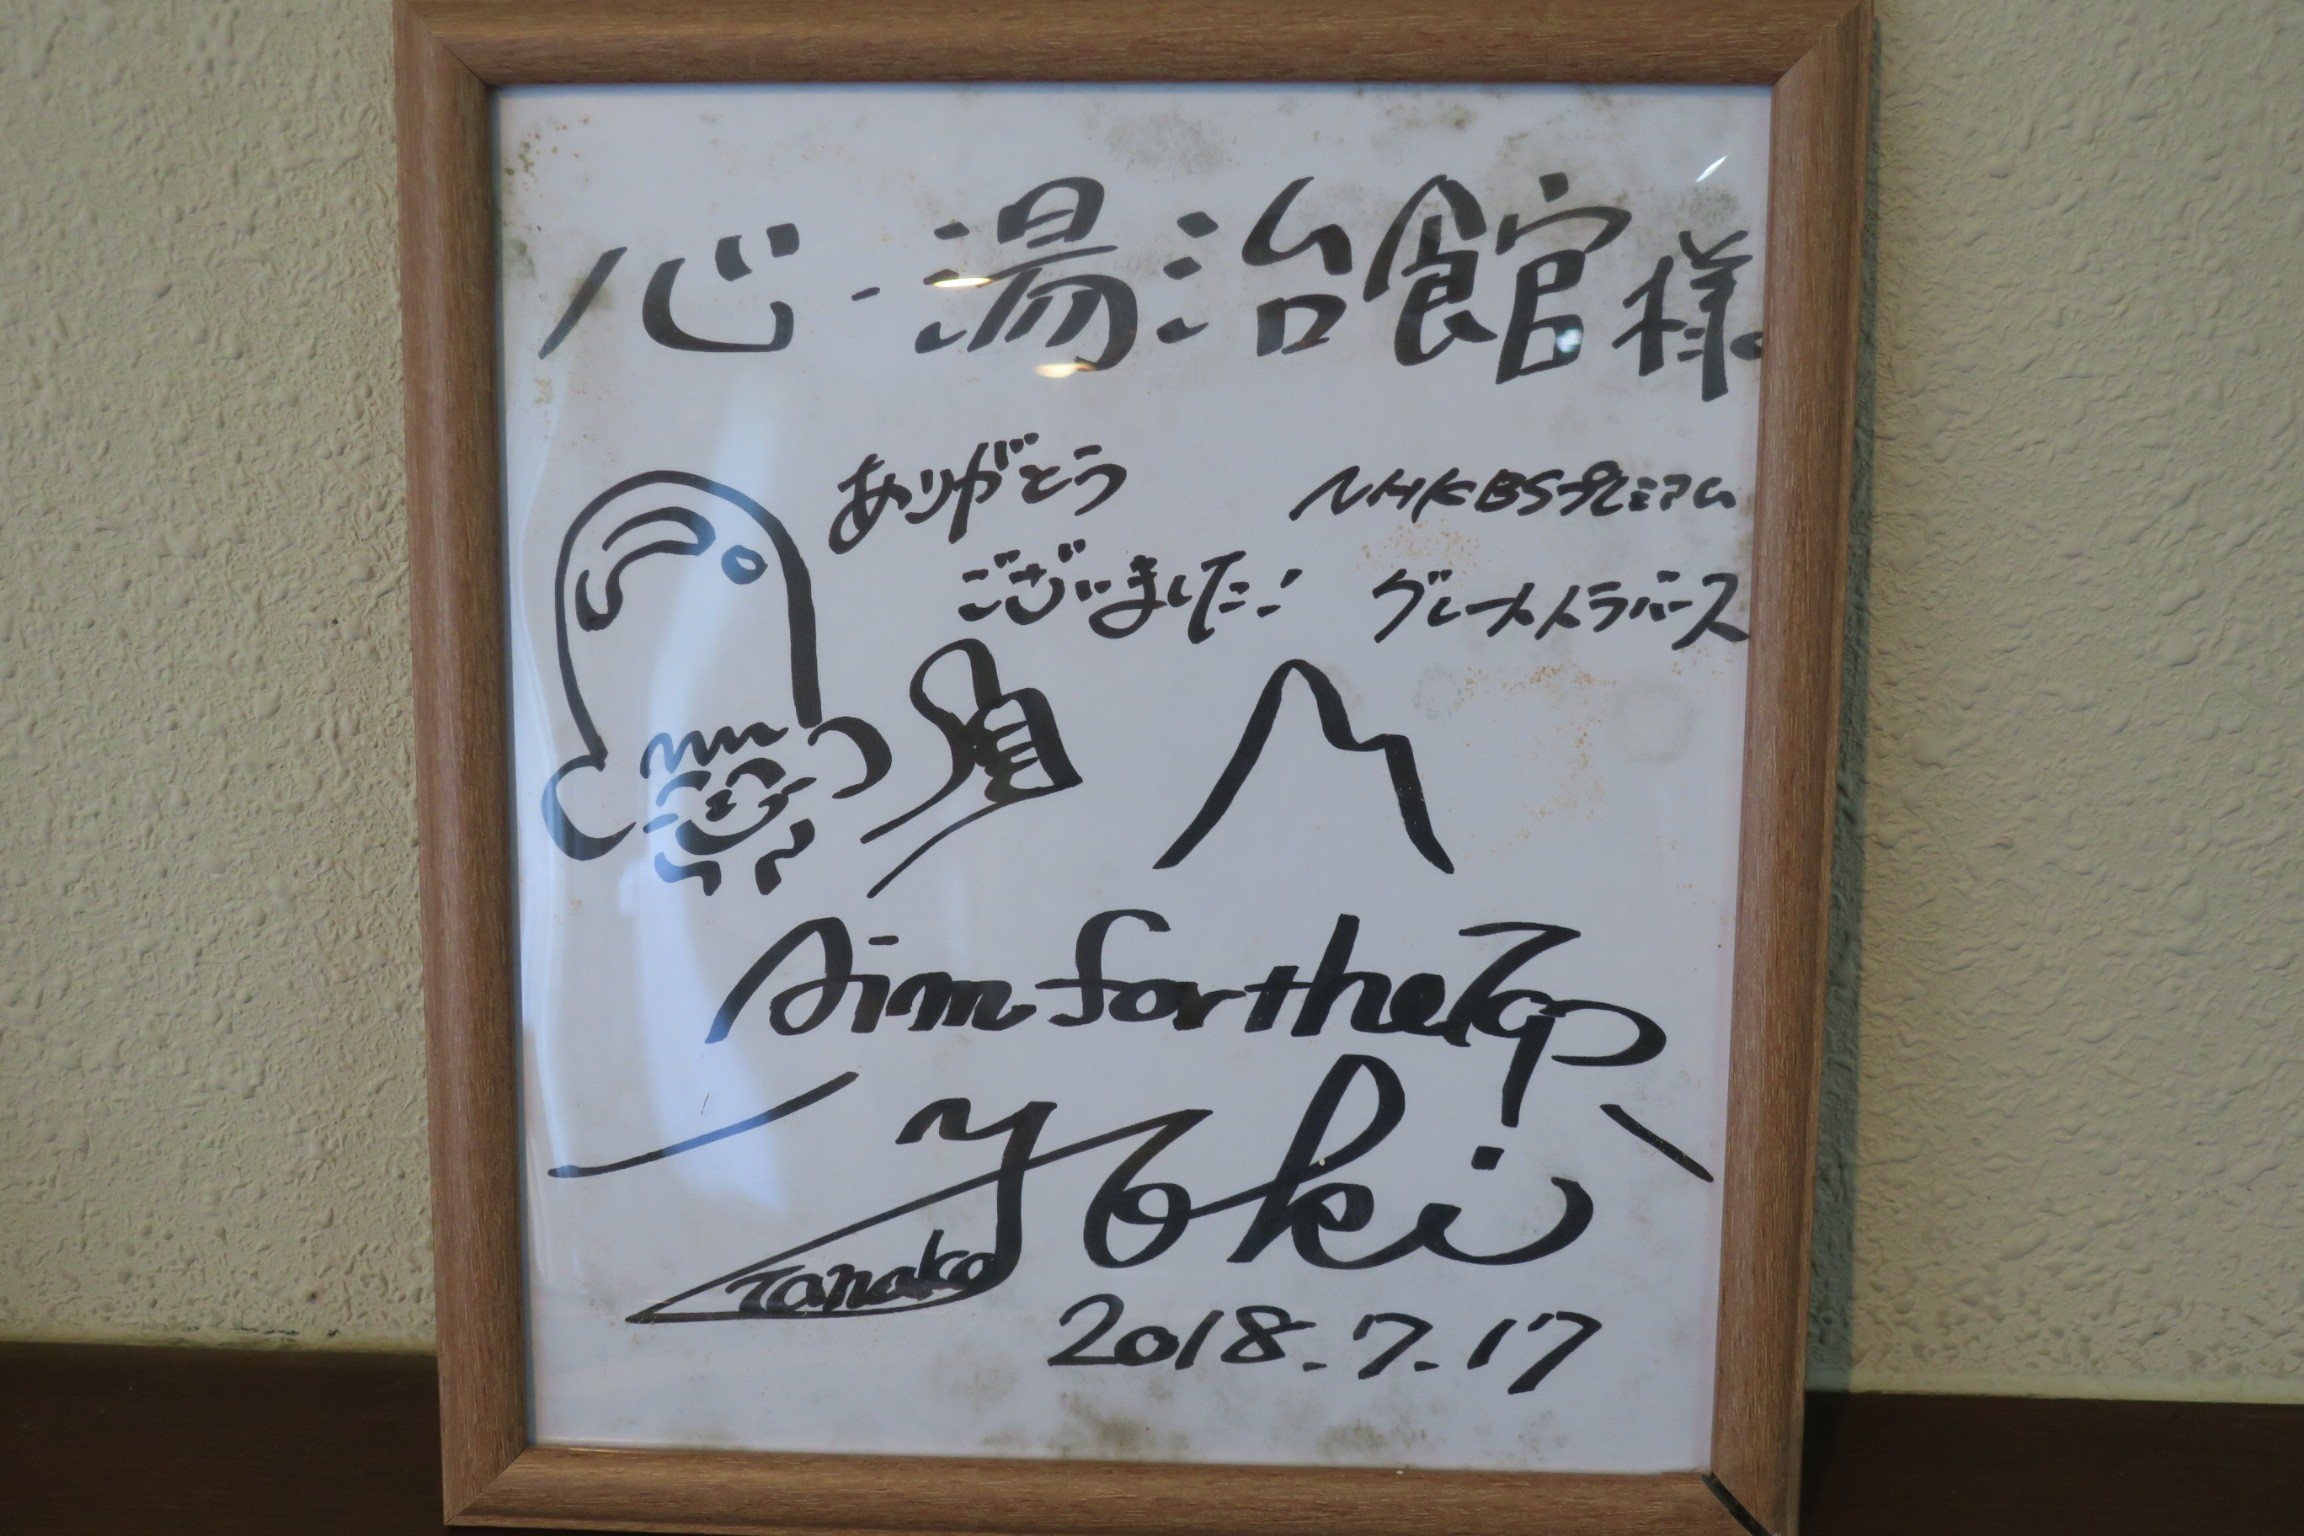 心・湯治館様
ありがとう
ございました!
NHK BSプレミアム
グレートトラバース
Aim for the Top
Yoki
Tanaka
2018.7.17